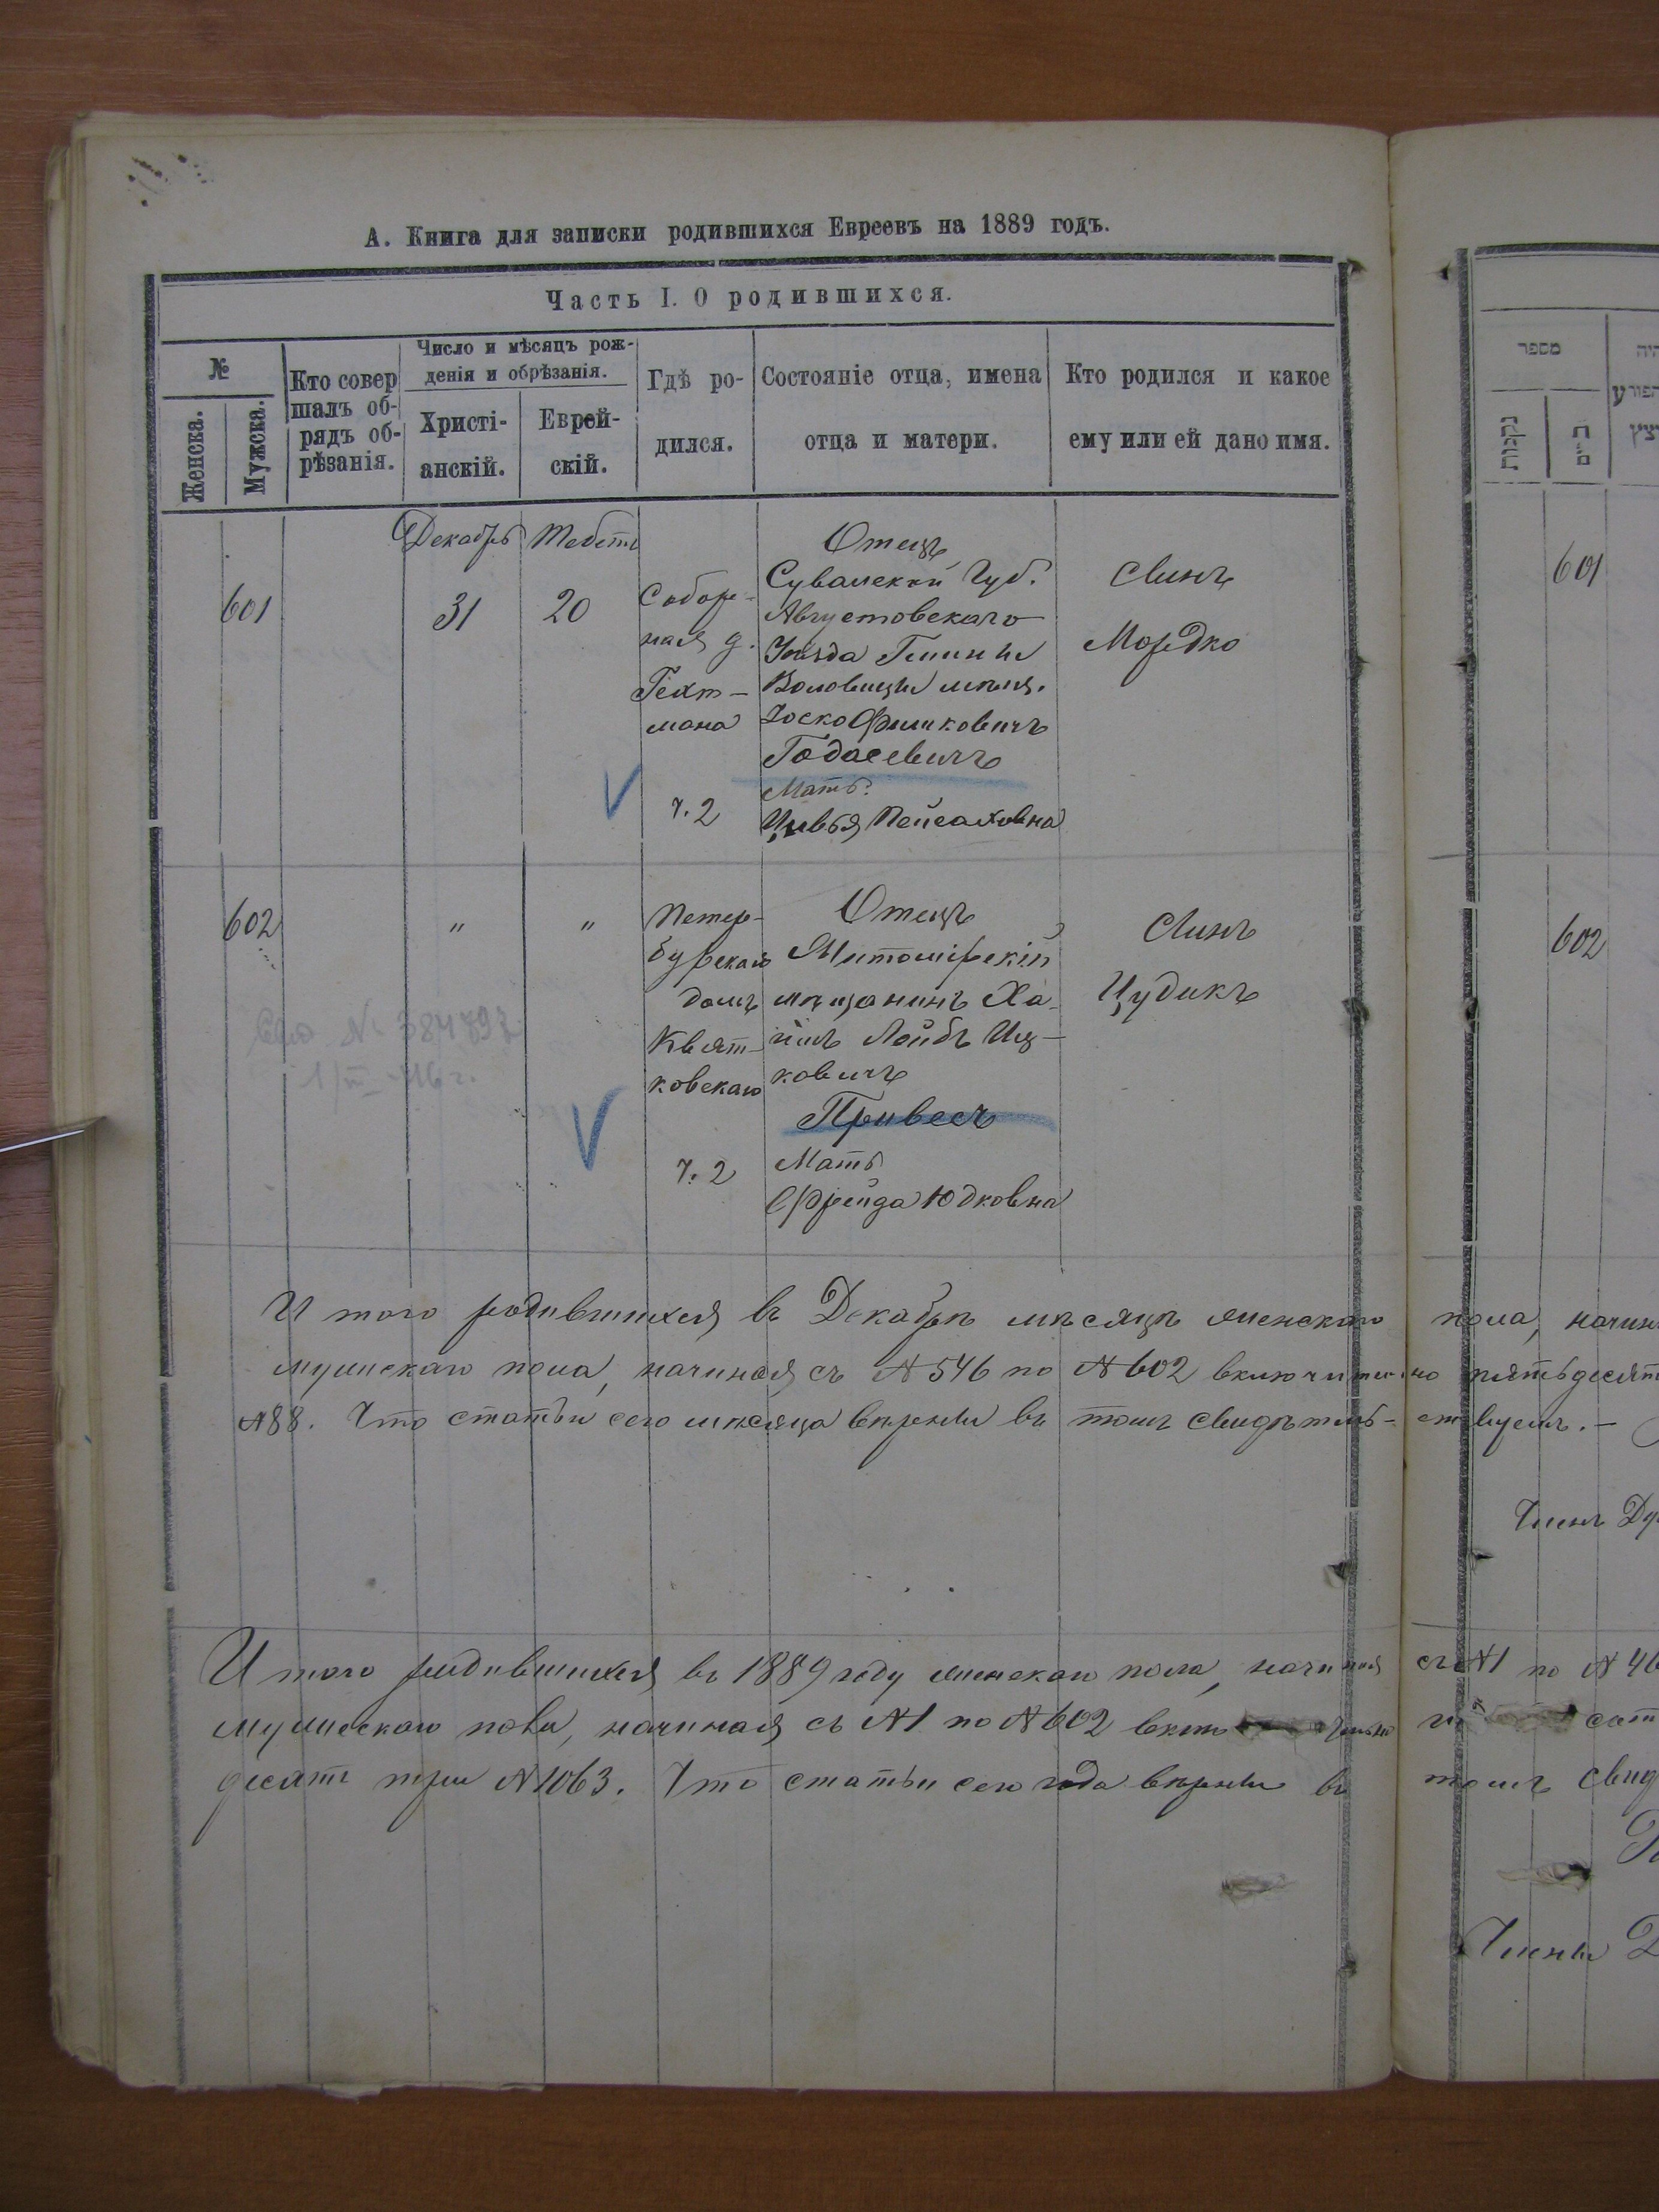 А. Книга для записки родившихся Евреевъ на 1889 годъ.
Часть I. О родившихся.
№
Женска.
Мужска.
Кто совер
шалъ об-
рядъ об-
рѣзанія.
Число и мѣсяцъ рож-
денія и обрѣзанія.
Христі-
анскій.
Еврей-
скій.
Гдѣ ро-
дился.
Состояніе отца, имена
отца и матери.
Кто родился и какое
ему или ей дано имя.
Декабрь
Тебетъ
601
31
20
Собор-
ная д.
Гехт-
мана
ч. 2
Отецъ
Сувалской Губ.
Августовскаго
Уѣзда Гмины
Воловицы мѣщ.
Іоско Фишковичъ
Годасевичъ
Мать:
Цивья Пейсаховна
Сынъ
Мордко
602
"
"
Петер-
бурскаго
домъ
Квят-
ковскаго
ч. 2
Отецъ
Житомірскій
мѣщанинъ Ха-
имъ Лейбъ Иц-
ковичъ
Привесъ
Мать
Фрейда Юдковна
Сынъ
Цудикъ
Итого родившихся въ Декабрѣ мѣсяцѣ женскаго пола,
мужескаго пола, начиная съ №546 по №602 включительно пятьдесят
№88. Что статьи сего мѣсяца вѣрны въ томъ свидѣтель-ствуемъ. —
Итого родившихся въ 1889 году женскаго пола, начиная съ №1 по №46
мужескаго пола, начиная съ №1 по №602
десятъ три №1063. Что статьи сего года вѣрны въ томъ свид
מספר
נקבות
601
602
Члены